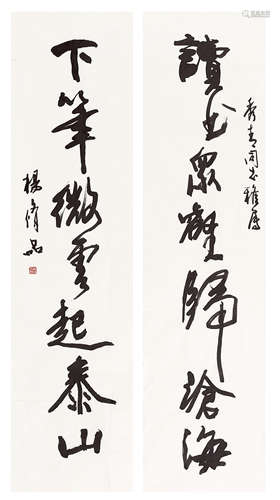 秀同志雅屬
讀書眾壑歸滄海
下筆微雲起泰山
楊修品